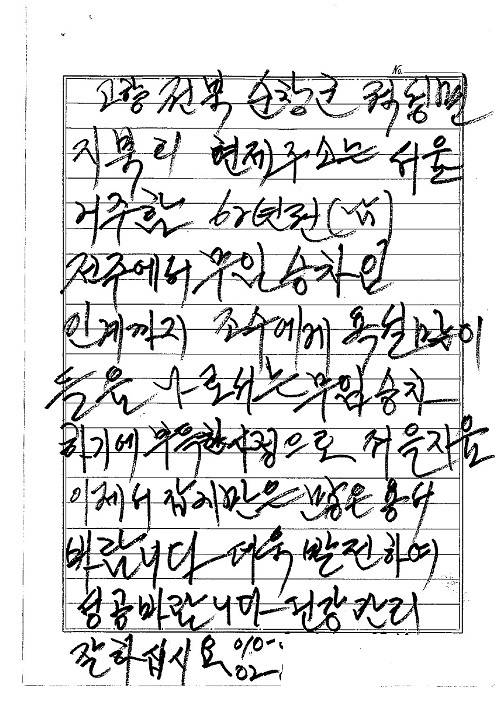 No.
고향 전북 순창군 적성면
지북리 현재주소는 서울
거주함 62년전(남)
전주에서 무임승차인
인계까지 조수에게 욕설많이
들음 나로서는 무임승차
하기에 부득한사정으로
이제서 잡지만은 많은 용서
바랍니다 더욱 발전하여
성공바랍니다 건강관리
잘하십시요 010-
02-